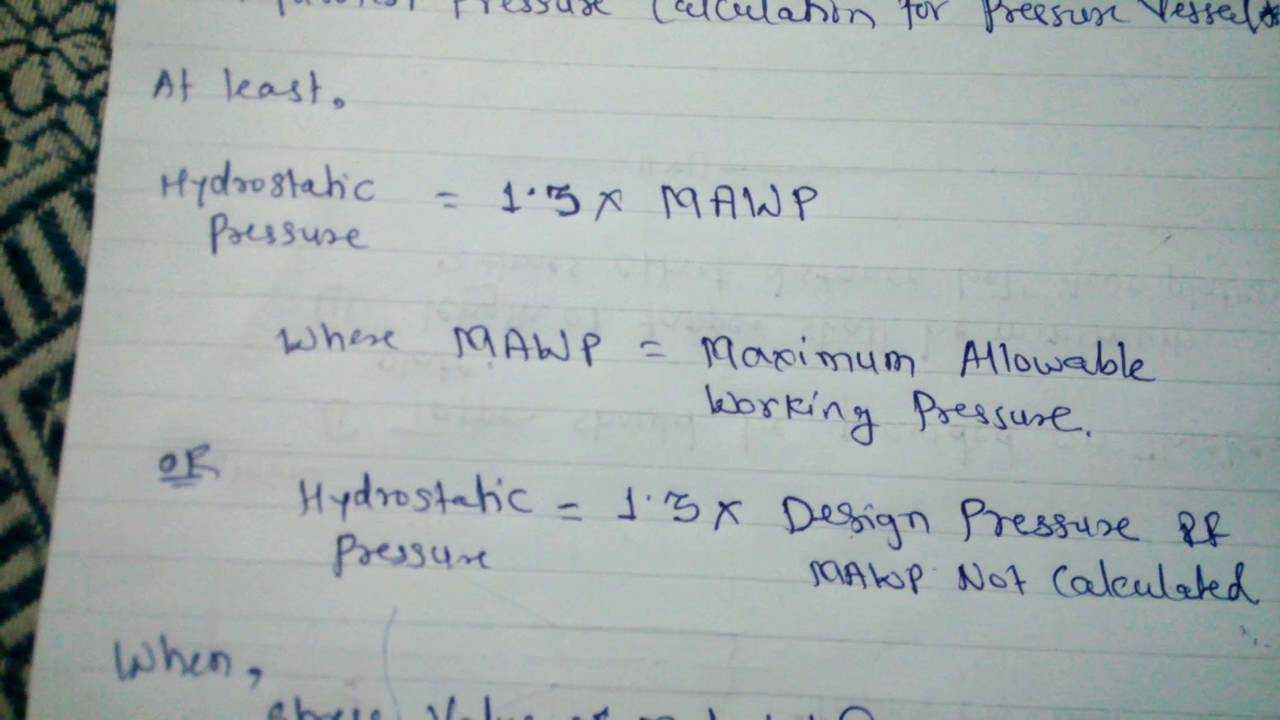 Pressure Calculation for Pressure Vessel
At least.
Hydrostatic = 1.3 x MAWP
Pressure
Where MAWP = Maximum Allowable
Working Pressure.
OR
Hydrostatic = 1.3 x Design Pressure if
Pressure MAWP Not Calculated
When,
above Value